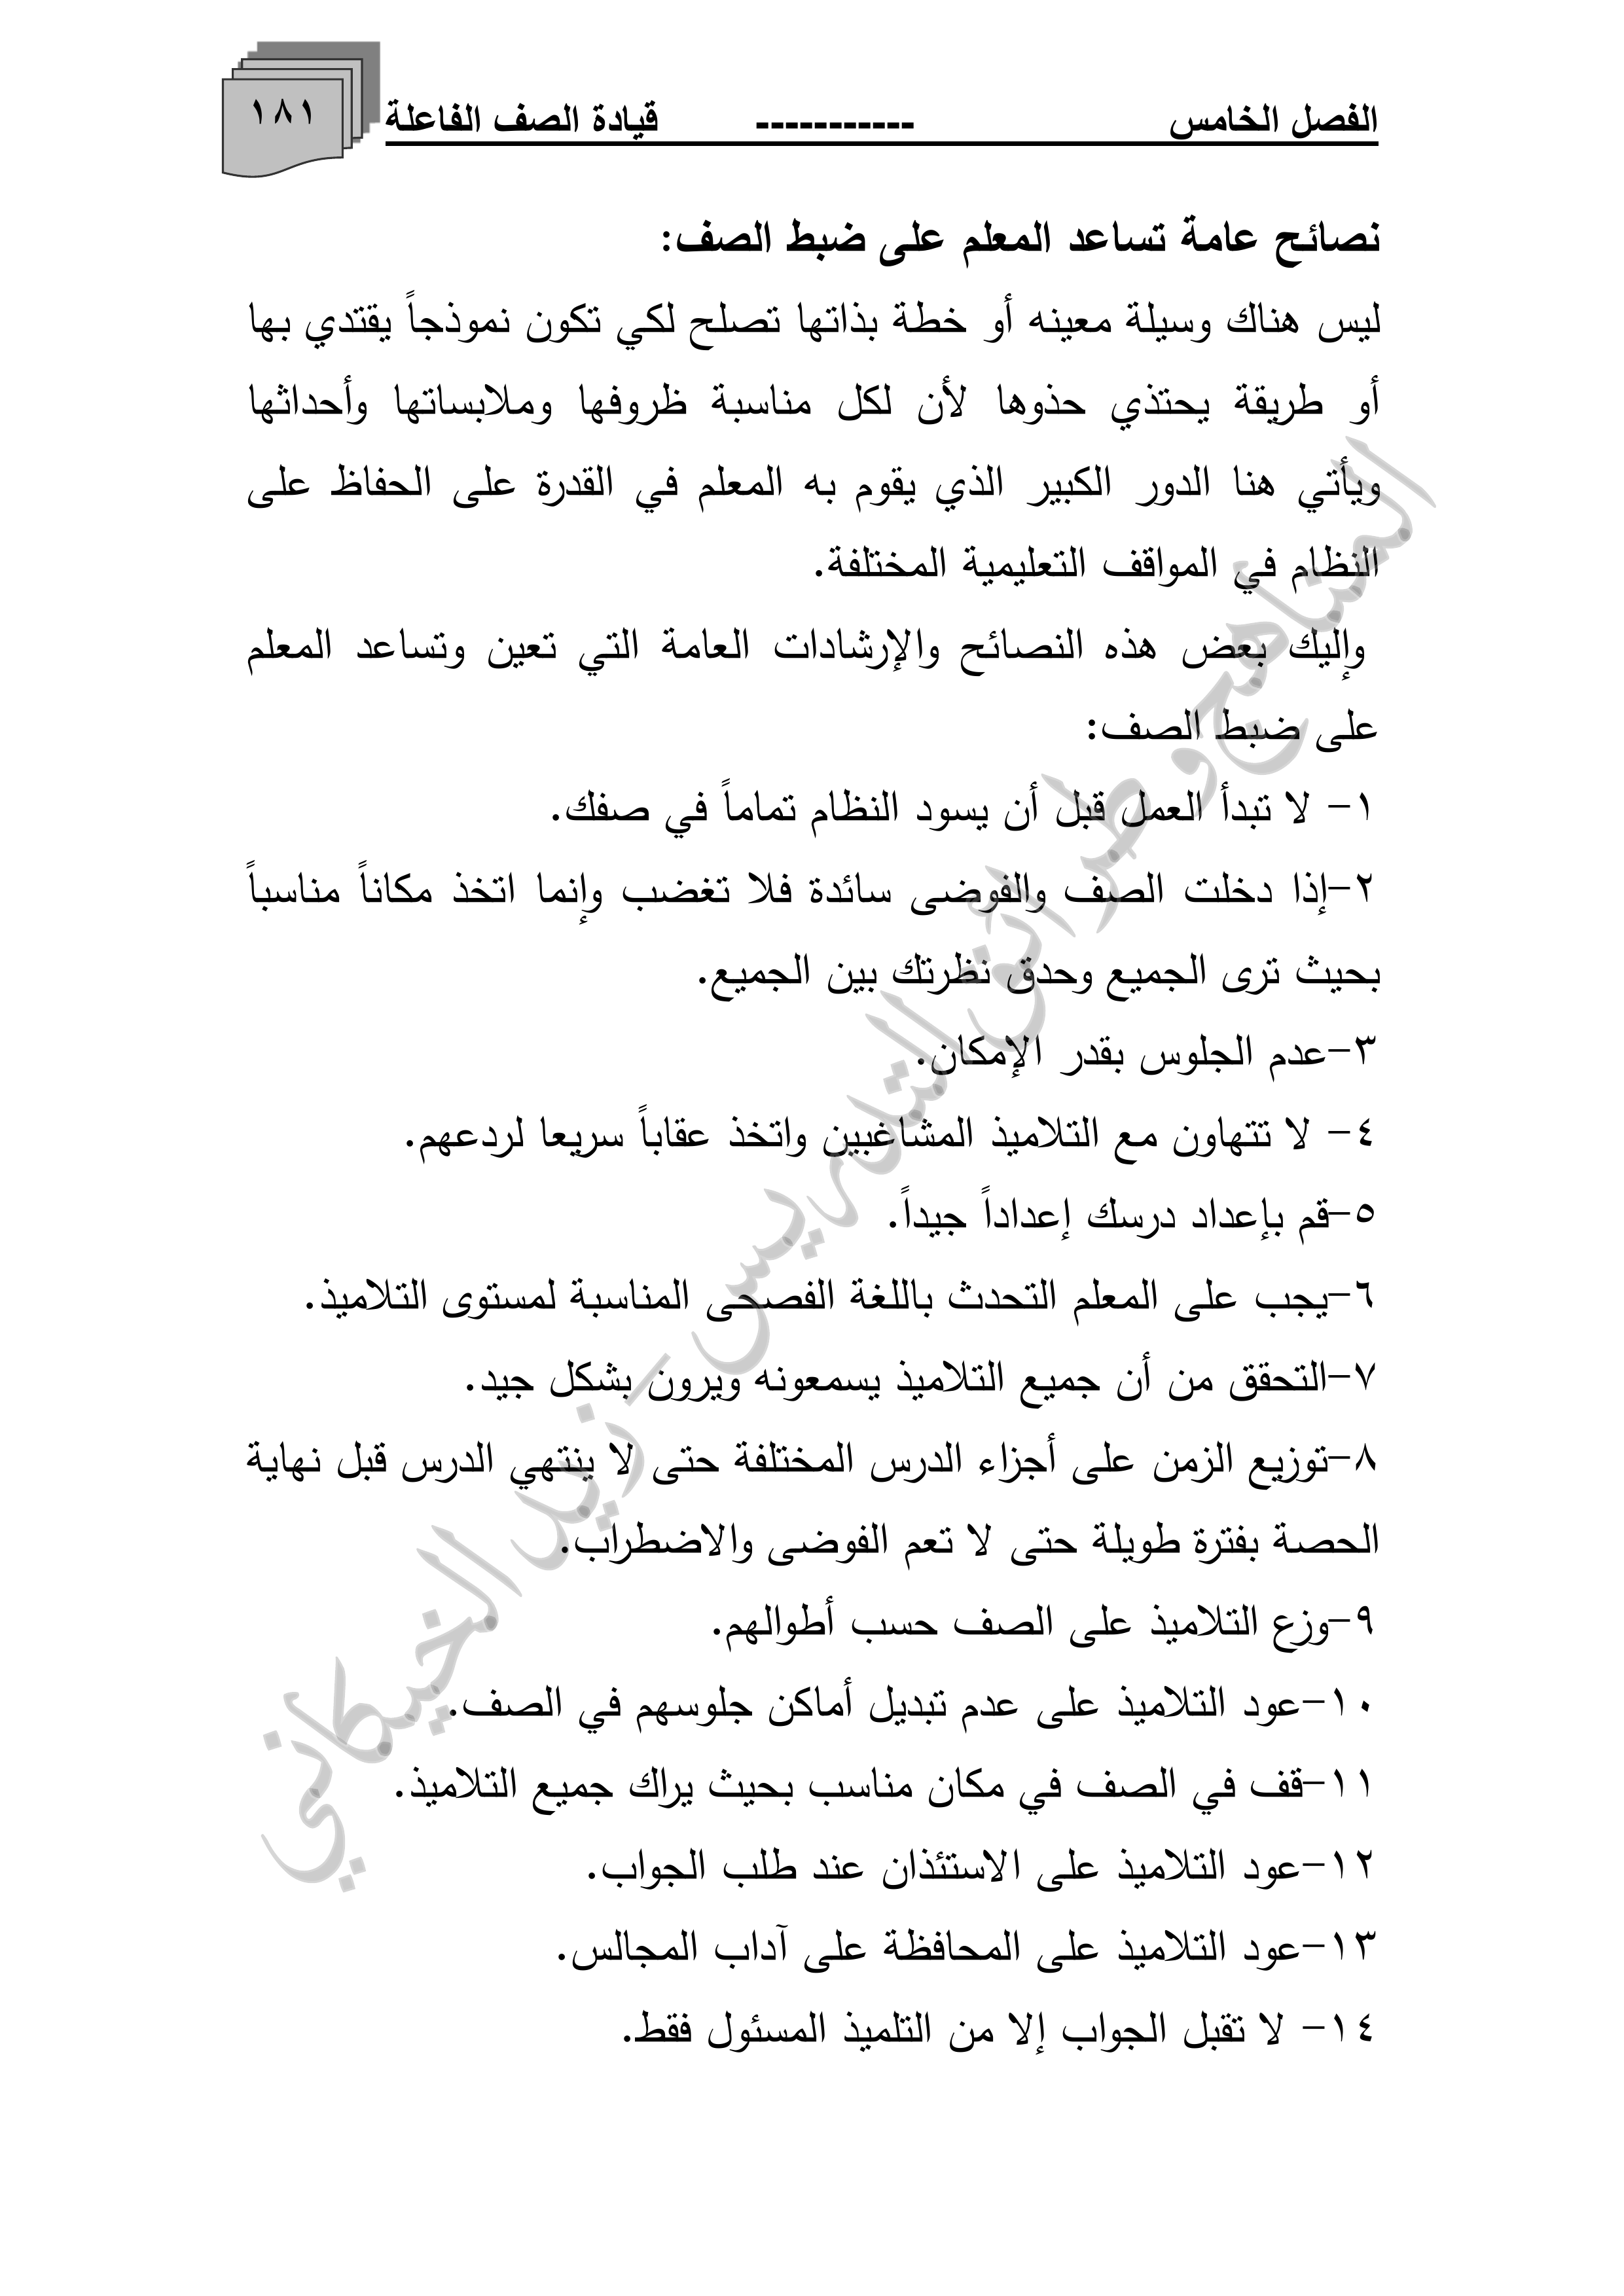 الفصل الخامس ----------- قيادة الصف الفاعلة ١٨١
نصائح عامة تساعد المعلم على ضبط الصف:
ليس هناك وسيلة معينه أو خطة بذاتها تصلح لكي تكون نموذجاً يقتدي بها
أو طريقة يحتذي حذوها لأن لكل مناسبة ظروفها وملابساتها وأحداثها
ويأتي هنا الدور الكبير الذي يقوم به المعلم في القدرة على الحفاظ على
النظام في المواقف التعليمية المختلفة.
وإليك بعض هذه النصائح والإرشادات العامة التي تعين وتساعد المعلم
على ضبط الصف:
١- لا تبدأ العمل قبل أن يسود النظام تماماً في صفك.
٢-إذا دخلت الصف والفوضى سائدة فلا تغضب وإنما اتخذ مكاناً مناسباً
بحيث ترى الجميع وحدق نظرتك بين الجميع.
٣-عدم الجلوس بقدر الإمكان.
٤- لا تتهاون مع التلاميذ المشاغبين واتخذ عقاباً سريعا لردعهم.
٥-قم بإعداد درسك إعداداً جيداً.
٦-يجب على المعلم التحدث باللغة الفصحى المناسبة لمستوى التلاميذ.
٧-التحقق من أن جميع التلاميذ يسمعونه ويرون بشكل جيد.
٨-توزيع الزمن على أجزاء الدرس المختلفة حتى لا ينتهي الدرس قبل نهاية
الحصة بفترة طويلة حتى لا تعم الفوضى والاضطراب.
٩-وزع التلاميذ على الصف حسب أطوالهم.
١٠-عود التلاميذ على عدم تبديل أماكن جلوسهم في الصف.
١١-قف في الصف في مكان مناسب بحيث يراك جميع التلاميذ.
١٢-عود التلاميذ على الاستئذان عند طلب الجواب.
١٣-عود التلاميذ على المحافظة على آداب المجالس.
١٤- لا تقبل الجواب إلا من التلميذ المسئول فقط.
المناهج وطرائق التدريس - زيد الخيكاني